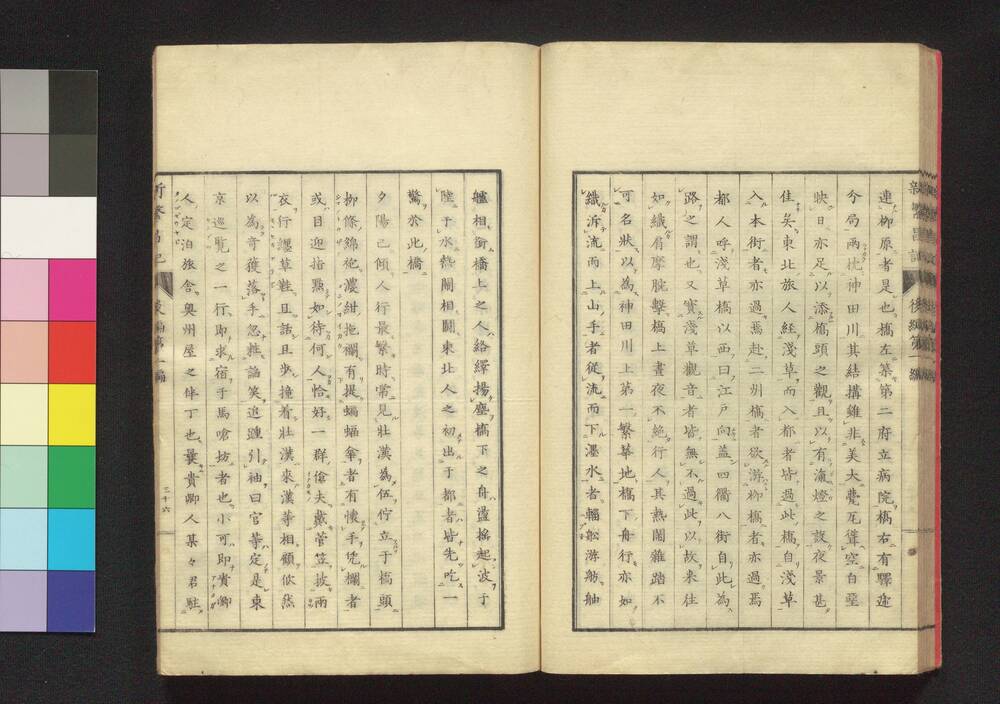 連柳原者是也橋左築第二府立病院橋右有驛遞
分局兩枕神田川其結構雖非美大甍瓦聳空白堊
映日亦足以添橋頭之觀且以有瀛燈之設夜景甚
佳矣東北旅人經淺草而入都者皆過此橋自淺草
入本街者亦過焉赴二州橋者欲游柳橋者亦過焉
都人呼淺草橋以西曰江戸向蓋四衢八街自此為
路之謂也又賽淺草觀音者皆無不過此以故來往
如織肩摩腕擊橋上晝夜不絶行人其熱鬧雜踏不
可名狀以為神田川上第一繁華地橋下舟行亦如
織泝流而上山手者從流而下墨水者輻舩游舫舳
艫相銜橋上之人絡繹揚塵橋下之舟盪搖起波于
陸于水熱鬧相鬪東北人之初出于都者皆先吃一
驚於此橋
夕陽已傾人行最繁時常見壯漢為伍佇立于橋頭
柳條綿袍濃紺拖襴有提蝙蝠傘者有懷手凭欄者
或目迎指點如待何人恰好一群傖夫戴菅笠披雨
衣行纏草鞋且話且歩撞着壯漢來漢等相顧佽然
以為奇獲落手忽粧諂笑追躡引袖曰官等定是東
京巡覧之一行即求宿于馬喰坊者也小可即貴卿
人定泊旅舎奧州屋之伴丁也曩貴卿人某々君駐
新繁昌記 後編第一編
三十六